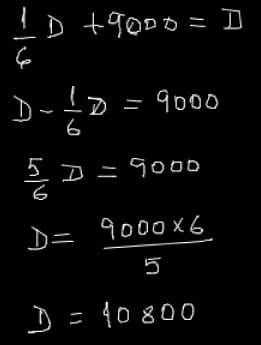 1/6 D + 9000 = D
D - 1/6 D = 9000
5/6 D = 9000
D = 9000 × 6 / 5
D = 10800